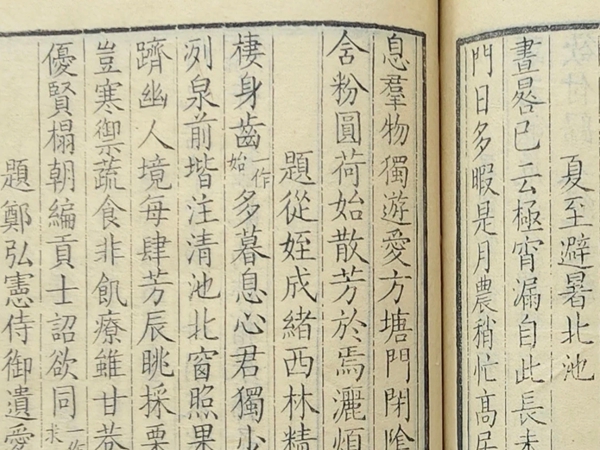 夏至避暑北池
晝晷已云極宵漏自此長未
門日多暇是月農稍忙高居
息羣物獨遊愛方塘門閉陰
含粉圓荷始散芳於焉灑煩
題從姪成緒西林精
棲身齒一作始多暮息心君獨少
冽泉前堦注清池北窗照果
躋幽人境每肆芳辰眺採栗
豈寒禦蔬食非飢療雖甘巷
優賢榻朝編貢士詔欲同一作求
題鄭弘憲侍御遺愛